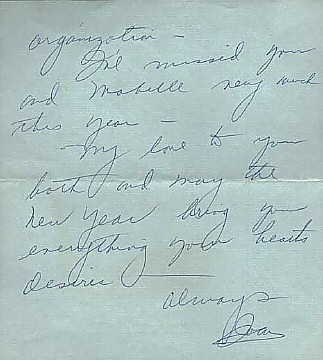 organization —
I've missed you
and Mabelle very much
this year —
My love to you
both and may the
New Year bring you
everything your hearts
desires —
always
Joan